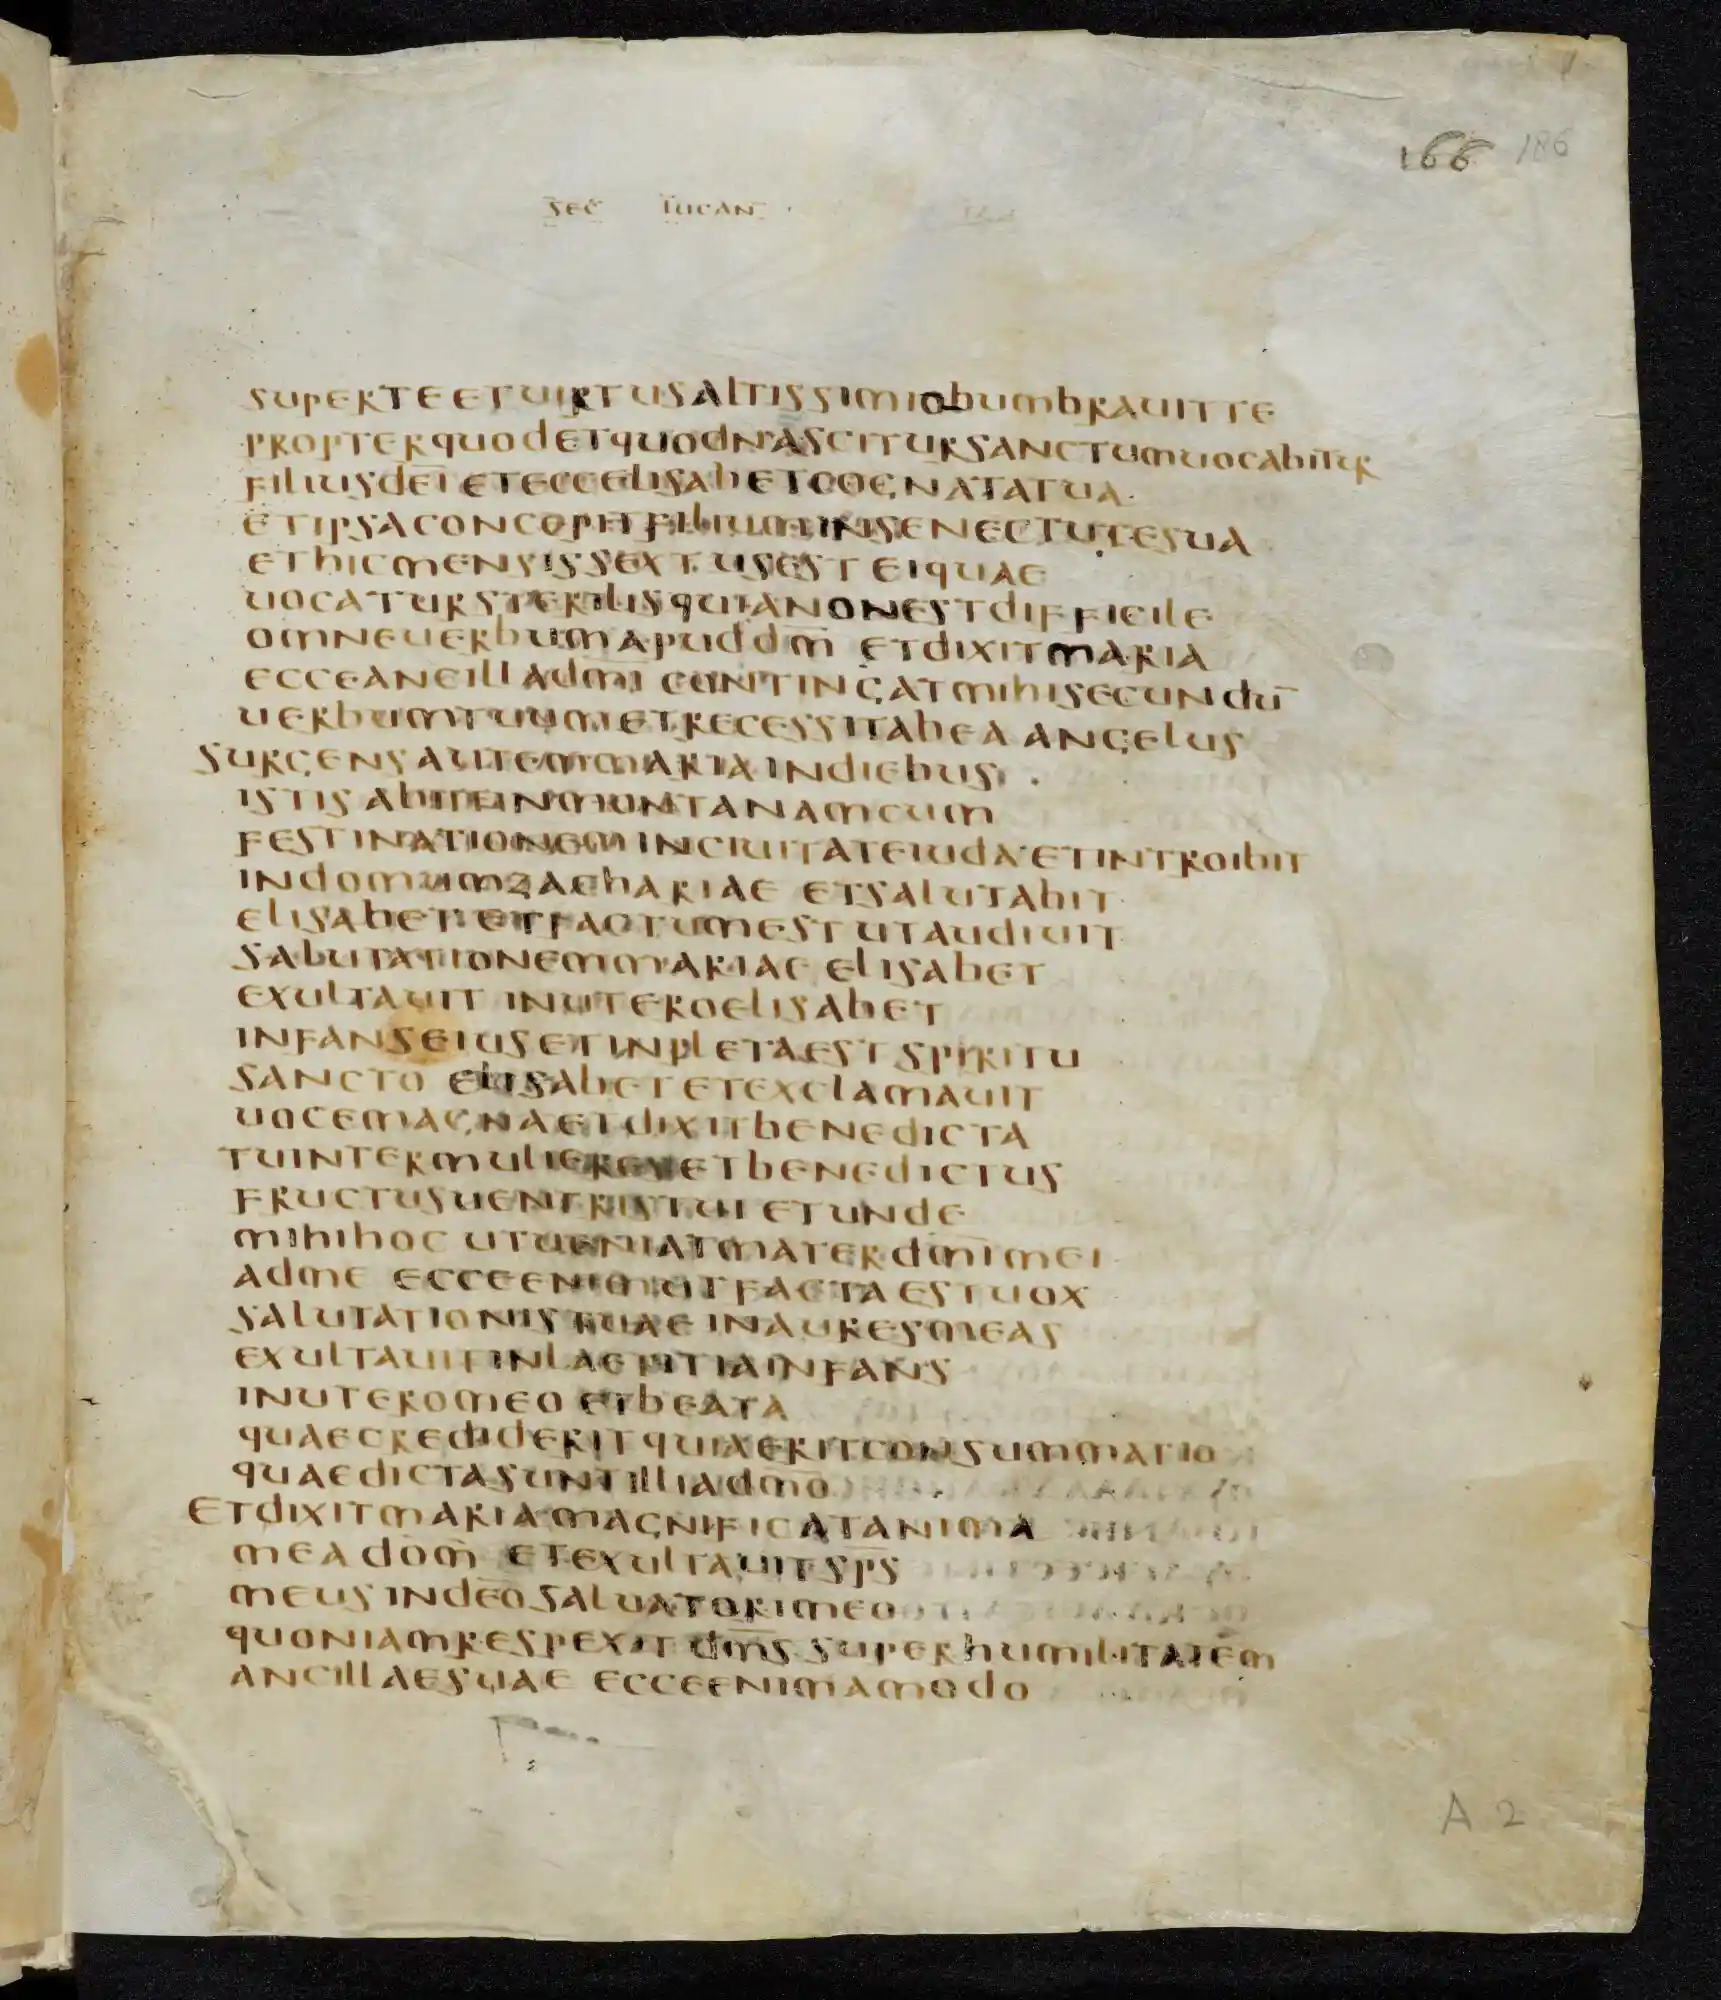 166 186
sec lucan
superteetuirtusaltissimiobumbrauitte
propterquodetquodnascitursanctumuocabitur
filiusdeī etecceelisabetcogenatatua
etipsaconcopitfiliuminsenectutesua
ethicmensissextusest eiquae
uocatursterilisquianonestdifficile
omneuerbumapuddm̄ etdixitmaria
ecceancilladmī contingatmihisecundū
uerbumtuumetrecessitabea angelus
surgensautemmariaindiebus
istisabiitinmontanamcum
festinationeminciuitateiuda etintroibit
indomumzachariae etsalutabit
elisabet etfactumest utaudiuit
salutationemmariae elisabet
exultauit inuteroelisabet
infanseiusetinpletaest spiritu
sancto elisabetetexclamauit
uocemagnaetdixitbenedicta
tuintermulieresetbenedictus
fructusuentristui etunde
mihihoc utueniatmaterdmīmei
adme ecceenimutfactaestuox
salutationistuae inauresmeas
exultauitinlaetitiainfans
inuteromeo etbeata
quaecredideritquiaeritconsummatio
quaedictasuntilliadmō
etdixitmariamagnificatanima
mea dom̄ etexultauitsp̄s
meusindeōsaluatorimeo
quoniamrespexit dm̄s superhumilitatem
ancillaesuae ecceenimamodo
A 2